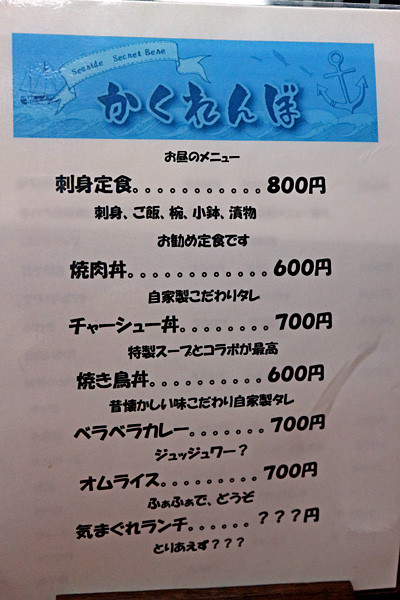 Seaside Secret Base
かくれんぼ
お昼のメニュー
刺身定食。。。。。。。。。。。800円
刺身、ご飯、椀、小鉢、漬物
お勧め定食です
焼肉丼。。。。。。。。。。。。600円
自家製こだわりタレ
チャーシュー丼。。。。。。。。700円
特製スープとコラボが最高
焼き鳥丼。。。。。。。。。。600円
昔懐かしい味こだわり自家製タレ
ベラベラカレー。。。。。。。700円
ジュッジュワー？
オムライス。。。。。。。。700円
ふぁふぁで、どうぞ
気まぐれランチ。。。。。。？？？円
とりあえず？？？